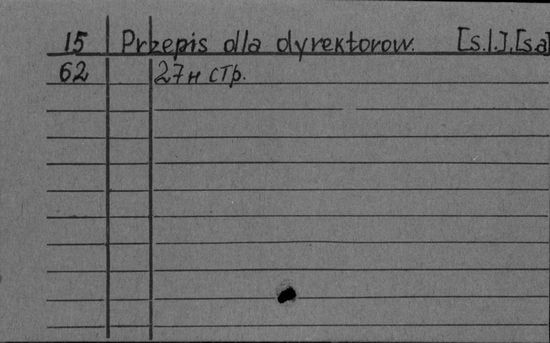 15 Przepis dla dyrektorow. [s.l.], [s.a]
62 27 н стр.